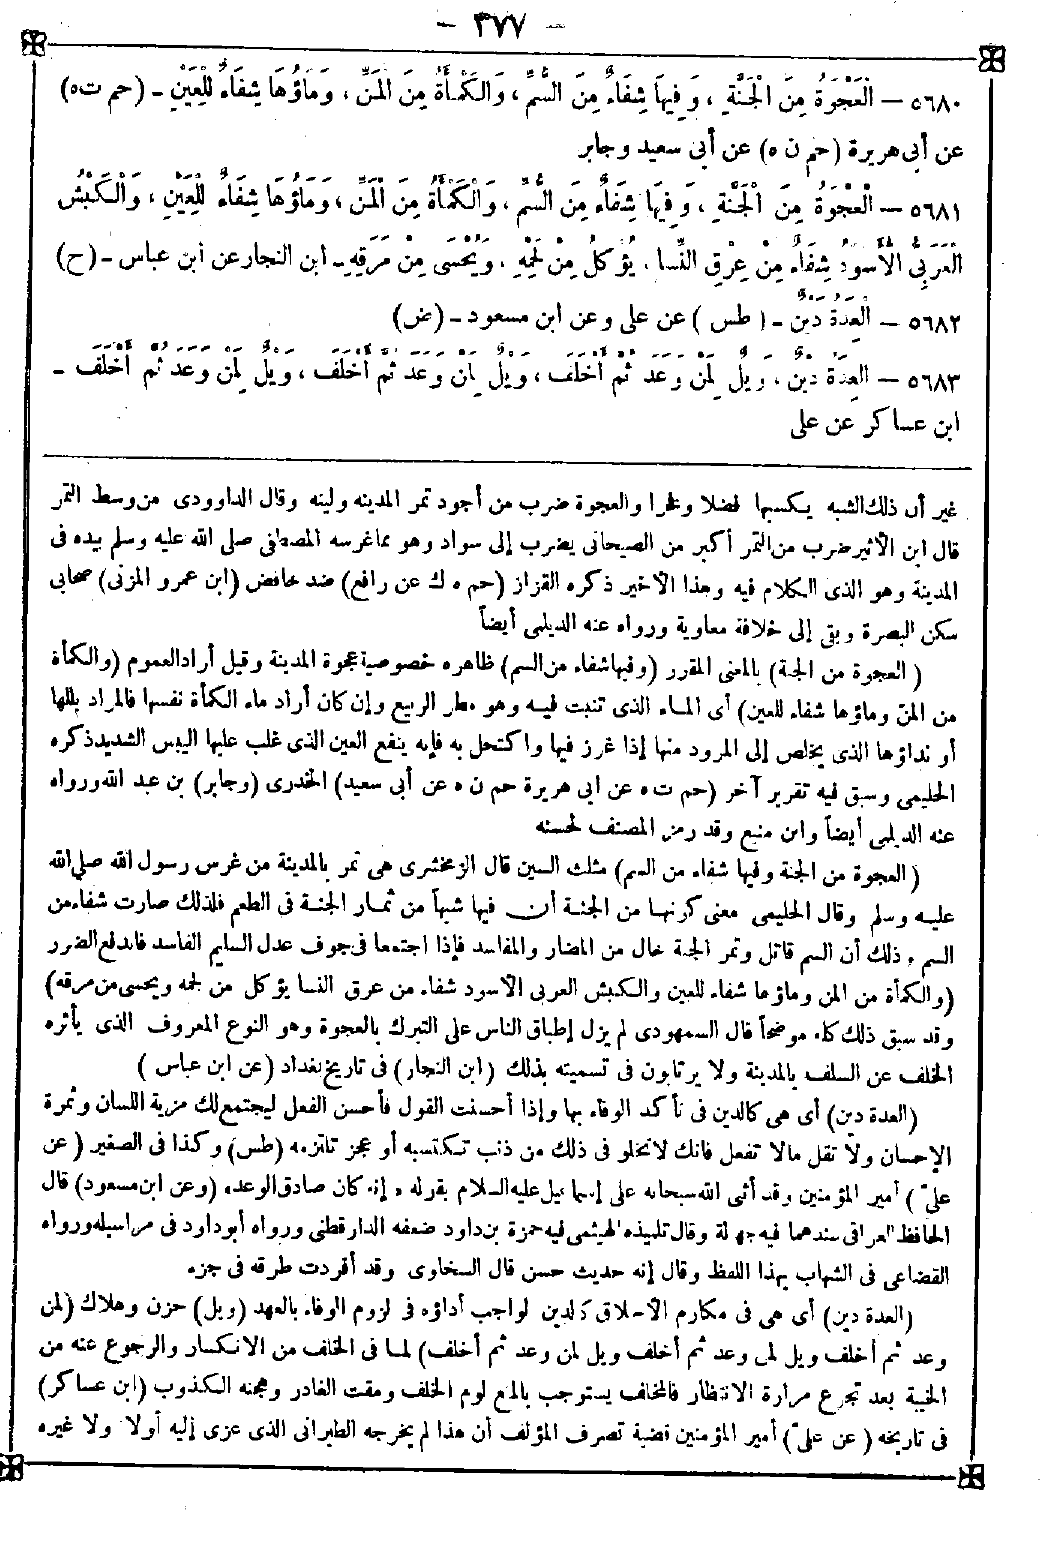 – ٣٧٧ –
٥٦٨٠ – الْعَجْوَةُ مِنَ الْجَنَّةِ ، وَفِيهَا شِفَاءٌ مِنَ السُّمِّ ، وَالْكَمْأَةُ مِنَ الْمَنِّ ، وَمَاؤُهَا شِفَاءٌ لِلْعَيْنِ – (حم ت ه)
عن أبى هريرة (حم ن ه) عن أبى سعيد وجابر
٥٦٨١ – الْعَجْوَةُ مِنَ الْجَنَّةِ ، وَفِيهَا شِفَاءٌ مِنَ السُّمِّ ، وَالْكَمْأَةُ مِنَ الْمَنِّ ، وَمَاؤُهَا شِفَاءٌ لِلْعَيْنِ ، وَالْكَبْشُ
الْعَرَبِىُّ الْأَسْوَدُ شِفَاءٌ مِنْ عِرْقِ النَّسَا ، يُؤْكَلُ مِنْ لَحْمِهِ ، وَيُحْسَى مِنْ مَرَقِهِ – ابن النجار عن ابن عباس – (ح)
٥٦٨٢ – الْعِدَةُ دَيْنٌ – (طس) عن على وعن ابن مسعود – (ض)
٥٦٨٣ – الْعِدَةُ دَيْنٌ ، وَيْلٌ لِمَنْ وَعَدَ ثُمَّ أَخْلَفَ ، وَيْلٌ لِمَنْ وَعَدَ ثُمَّ أَخْلَفَ ، وَيْلٌ لِمَنْ وَعَدَ ثُمَّ أَخْلَفَ –
ابن عساكر عن على
غير أن ذلك الشبه يكسبها فضلا وفخرا والعجوة ضرب من أجود تمر المدينة ولينه وقال الداوودى من وسط التمر
قال ابن الأثير ضرب من التمر أكبر من الصيحانى يضرب إلى سواد وهو مما غرسه المصطفى صلى الله عليه وسلم بيده فى
المدينة وهو الذى الكلام فيه وهذا الأخير ذكره القزاز (حم ه ك عن رافع) ضد خافض (ابن عمرو المزنى) صحابى
سكن البصرة وبقى إلى خلافة معاوية ورواه عنه الديلمى أيضاً
(العجوة من الجنة) بالمعنى المقرر (وفيها شفاء من السم) ظاهره خصوصية عجوة المدينة وقيل أراد العموم (والكمأة
من المن وماؤها شفاء للعين) أى الماء الذى تنبت فيه وهو مطر الربيع وإن كان أراد ماء الكمأة نفسها فالمراد بللها
أو نداؤها الذى يخلص إلى المرود منها إذا غرز فيها واكتحل به فإنه ينفع العين الذى غلب عليها اليبس الشديد ذكره
الحليمى وسبق فيه تقرير آخر (حم ت ه عن ابى هريرة حم ن ه عن أبى سعيد) الخدرى (وجابر) بن عبد الله ورواه
عنه الديلمى أيضاً وابن منيع وقد رمز المصنف لحسنه
(العجوة من الجنة وفيها شفاء من السم) مثلث السين قال الزمخشرى هى تمر بالمدينة من غرس رسول الله صلى الله
عليه وسلم وقال الحليمى معنى كونها من الجنة أن فيها شبهاً من ثمار الجنة فى الطعم فلذلك صارت شفاء من
السم وذلك أن السم قاتل وتمر الجنة خال من المضار والمفاسد فإذا اجتمعا فى جوف عدل السليم الفاسد فاندفع الضرر
(والكمأة من المن وماؤها شفاء للعين والكبش العربى الأسود شفاء من عرق النسا يؤكل من لحمه ويحسى من مرقه)
وقد سبق ذلك كله موضحاً قال السمهودى لم يزل إطباق الناس على التبرك بالعجوة وهو النوع المعروف الذى يأثره
الخلف عن السلف بالمدينة ولا يرتابون فى تسميته بذلك (ابن النجار) فى تاريخ بغداد (عن ابن عباس)
(العدة دين) أى هى كالدين فى تأكد الوفاء بها وإذا أحسنت القول فأحسن الفعل ليجتمع لك مزية اللسان وثمرة
الإحسان ولا تقل مالا تفعل فانك لا تخلو فى ذلك من ذنب تكتسبه أو عجز تلتزمه (طس) وكذا فى الصغير (عن
علىّ) أمير المؤمنين وقد أثنى الله سبحانه على إسماعيل عليه السلام بقوله « إنه كان صادق الوعد » (وعن ابن مسعود) قال
الحافظ العراقى سندهما فيه جهالة وقال تلميذه الهيثمى فيه حمزة بن داود ضعفه الدارقطنى ورواه أبو داود فى مراسيله ورواه
القضاعى فى الشهاب بهذا اللفظ وقال إنه حديث حسن قال السخاوى وقد أفردت طرقه فى جزء
(العدة دين) أى هى فى مكارم الأخلاق كالدين لواجب أداؤه فى لزوم الوفاء بالعهد (ويل) حزن وهلاك (لمن
وعد ثم أخلف ويل لمن وعد ثم أخلف ويل لمن وعد ثم أخلف) لما فى الخلف من الانكسار والرجوع عنه من
الخيبة بعد تجرع مرارة الانتظار فالمخلف يستوجب بالمنع لوم الخلف ومقت الغادر وهجنة الكذوب (ابن عساكر)
فى تاريخه (عن علىّ) أمير المؤمنين قضية تصرف المؤلف أن هذا لم يخرجه الطبرانى الذى عزى إليه أولا ولا غيره